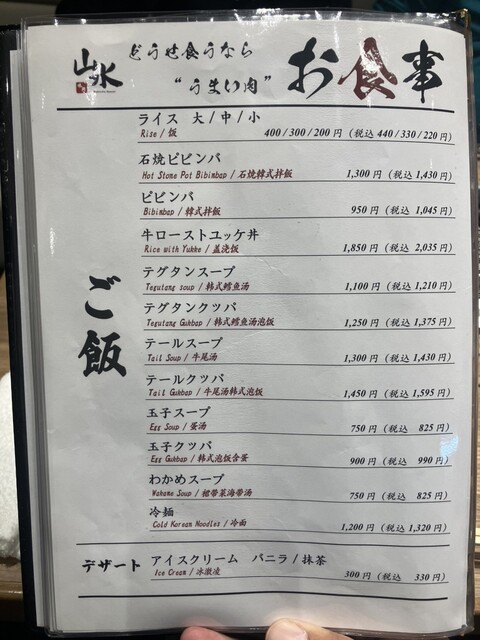 山水
どうせ食うなら
“うまい肉”
お食事
ご飯
ライス 大/中/小
Rise / 饭 400/300/200円 (税込 440/330/220円)
石焼ビビンバ
Hot Stone Pot Bibimbap / 石焼韓式拌飯 1,300円 (税込 1,430円)
ビビンバ
Bibimbap / 韓式拌飯 950円 (税込 1,045円)
牛ローストユッケ丼
Rice with Yukke / 盖浇饭 1,850円 (税込 2,035円)
テグタンスープ
Tegutang soup / 韩式鳕鱼汤 1,100円 (税込 1,210円)
テグタンクツパ
Tegutang Gukbap / 韩式鳕鱼汤泡饭 1,250円 (税込 1,375円)
テールスープ
Tail Soup / 牛尾汤 1,300円 (税込 1,430円)
テールクツパ
Tail Gukbap / 牛尾汤韩式泡饭 1,450円 (税込 1,595円)
玉子スープ
Egg Soup / 蛋汤 750円 (税込 825円)
玉子クツパ
Egg Gukbap / 韩式泡饭含蛋 900円 (税込 990円)
わかめスープ
Wakame Soup / 裙带菜海带汤 750円 (税込 825円)
冷麺
Cold Korean Noodles / 冷面 1,200円 (税込 1,320円)
デザート
アイスクリーム バニラ/抹茶
Ice Cream / 冰激凌 300円 (税込 330円)